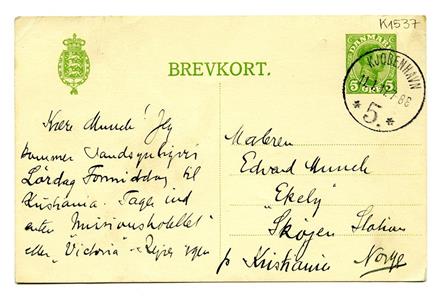 K1537
DANMARK
5 5
BREVKORT.
KJØBENHAVN
5.
Kære Munch! Jeg
kommer Sandsynligvis
Lördag Formiddag til
Kristiania. Tager ind
enten "Missionshotellet"
eller "Victoria" - Rejser
Maleren
Edvard Munch
"Ekely"
Skøjen Station
pr Kristiania Norge